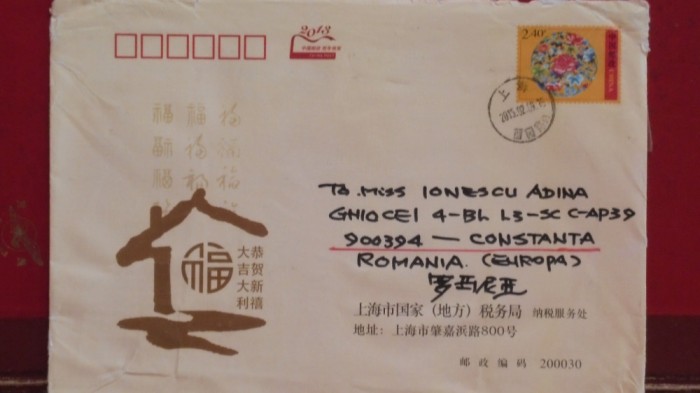 2013
2.40元
中国邮政 CHINA
上海
To Miss IONESCU ADINA
GHIOCEI 4-BL L3-SC C-AP39
900394 — CONSTANTA
ROMANIA (EUROPA)
罗马尼亚
福 福 福
福
恭贺新禧
大吉大利
上海市国家（地方）税务局 纳税服务处
地址：上海市肇嘉浜路800号
邮政编码 200030